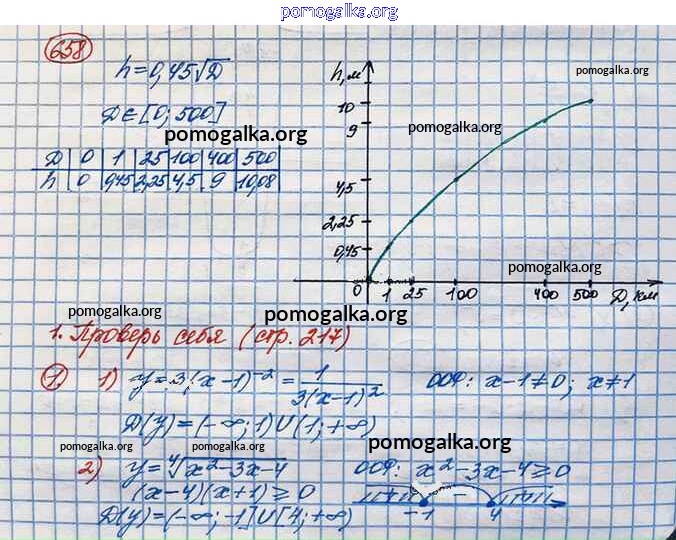 pomogalka.org
658
h = 0,45√D
D ∈ [0; 500]
pomogalka.org
D | 0 | 1 | 25 | 100 | 400 | 500
h | 0 | 0,45 | 2,25 | 4,5 | 9 | 10,08
h, м
pomogalka.org
10
9
pomogalka.org
4,5
2,25
0,45
pomogalka.org
0 1 25 100 400 500 D, км
pomogalka.org
pomogalka.org
1. Проверь себя (стр. 217)
1. 1) y = 3(x-1)⁻² = 1/3(x-1)² ООФ: x-1≠0; x≠1
D(y) = (-∞; 1)∪(1; +∞)
pomogalka.org
pomogalka.org
pomogalka.org
2) y = ⁴√x²-3x-4 ООФ: x²-3x-4⩾0
(x-4)(x+1) ⩾ 0
−
-1 4
D(y) = (-∞; -1]∪[4; +∞)
pomogalka.org